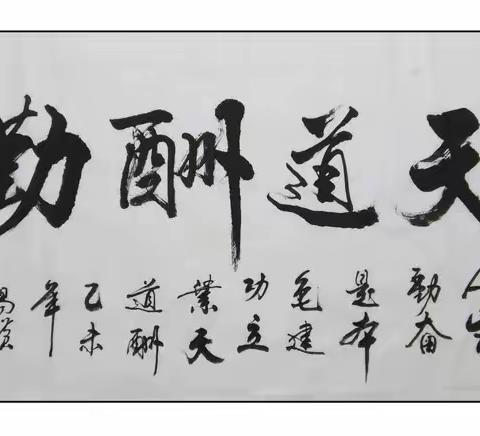 天道酬勤
人生
勤奋
是本
色建
功立
業天
道酬
乙未
年